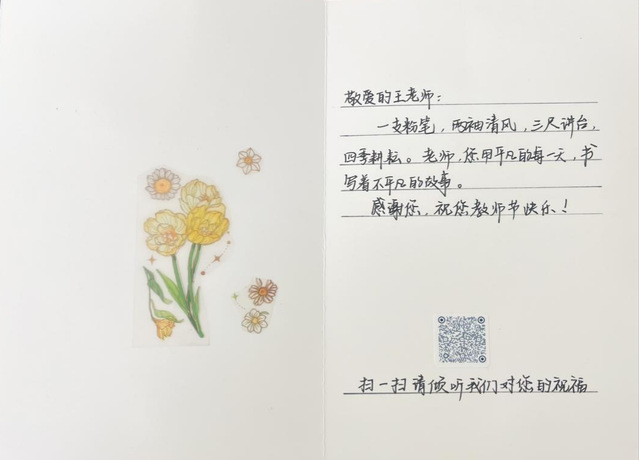 敬爱的王老师：
一支粉笔，两袖清风，三尺讲台，
四季耕耘。老师，您用平凡的每一天，书
写着不平凡的故事。
感谢您，祝您教师节快乐！
扫一扫请倾听我们对您的祝福